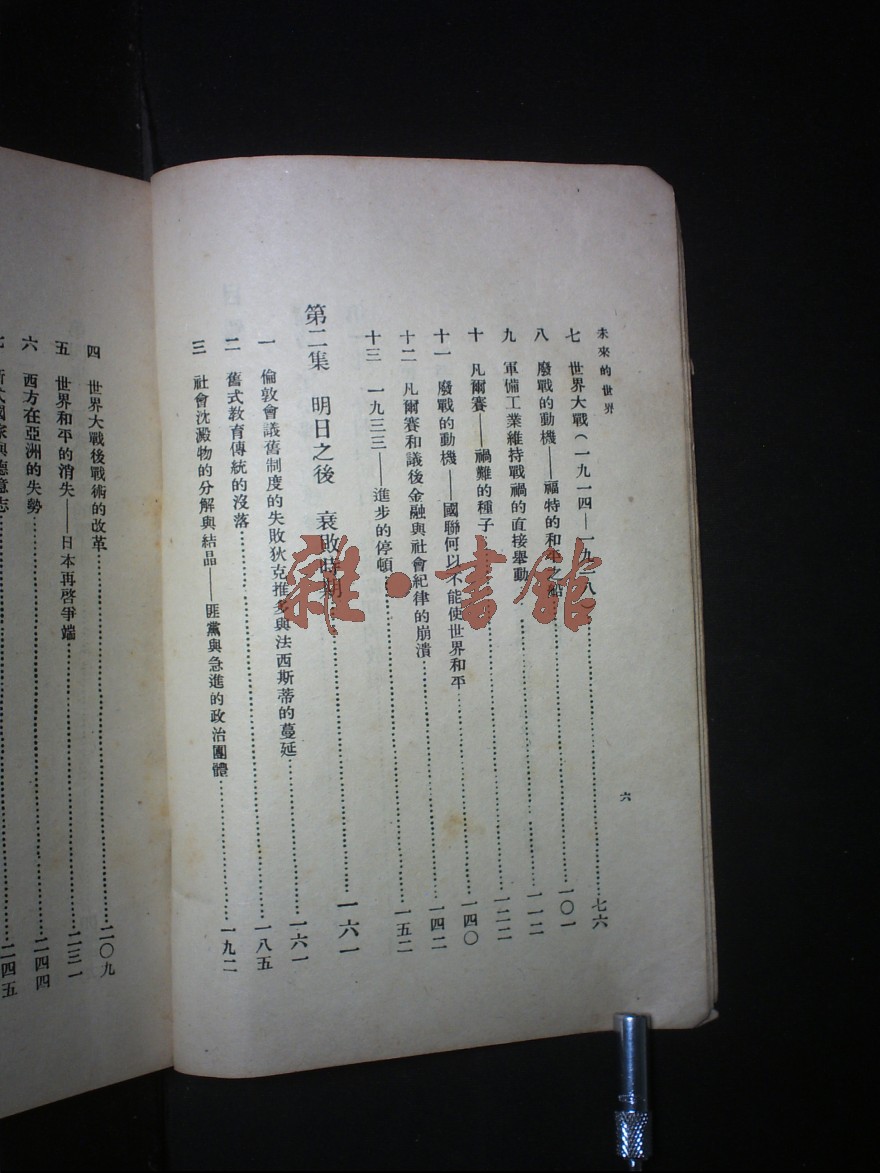 未來的世界
七 世界大戰(一九一四—一九一八)⋯⋯七六
八 廢戰的動機——福特的和平之船⋯⋯一〇一
九 軍備工業維持戰禍的直接舉動⋯⋯一一二
十 凡爾賽——禍難的種子⋯⋯一四〇
十一 廢戰的動機——國聯何以不能使世界和平⋯⋯一四二
十二 凡爾賽和議後金融與社會紀律的崩潰⋯⋯一五二
十三 一九三三——進步的停頓
第二集 明日之後 衰敗時期⋯⋯一六一
一 倫敦會議舊制度的失敗狄克推多與法西斯蒂的蔓延⋯⋯一六一
二 舊式教育傳統的沒落⋯⋯一八五
三 社會沈澱物的分解與結晶——匪黨與急進的政治團體⋯⋯一九二
六
四 世界大戰後戰術的改革⋯⋯二〇九
五 世界和平的消失——日本再啓爭端⋯⋯二三一
六 西方在亞洲的失勢⋯⋯二四四
二四五
雜·書館